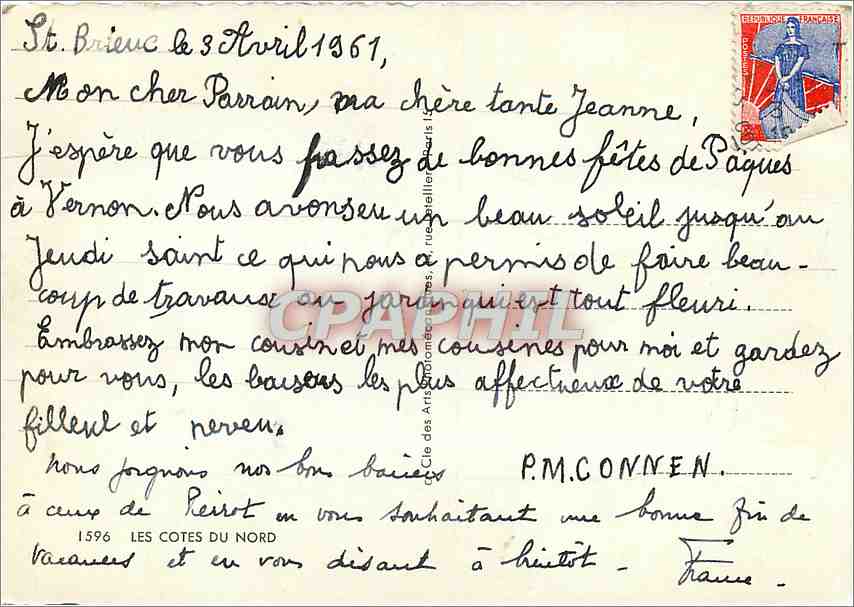 St. Brieuc le 3 Avril 1961,
Mon cher Parrain, ma chère tante Jeanne,
J'espère que vous passez de bonnes fêtes de Pâques
à Vernon. Nous avons eu un beau soleil jusqu'au
Jeudi saint ce qui nous a permis de faire beau-
coup de travaux au jardin qui est tout fleuri.
Embrassez mon cousin et mes cousines pour moi et gardez
pour vous, les baisers les plus affectueux de votre
filleul et neveu.
P.M.CONNEN.
nous joignons nos bons baisers
à ceux de Pierrot en vous souhaitant une bonne fin de
vacances et en vous disant à bientôt -
France -
1596 LES COTES DU NORD
REPUBLIQUE FRANÇAISE
POSTES
CPAPHIL
Cie des Arts Photomécaniques, rue Letellier, Paris 15